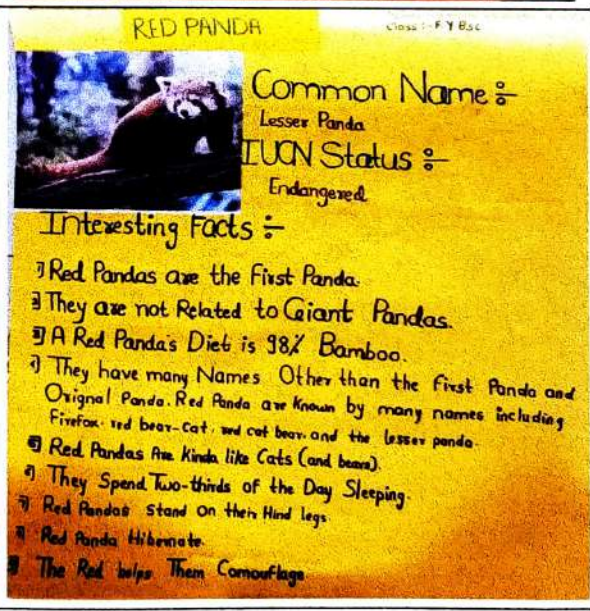 RED PANDA
Class :- F Y BSc
Common Name :-
Lesser Panda
IUCN Status :-
Endangered
Interesting Facts :-
1) Red Pandas are the First Panda.
2) They are not Related to Giant Pandas.
3) A Red Panda's Diet is 98% Bamboo.
4) They have many Names Other than the First Panda and
Orignal Panda. Red Panda are Known by many names including
Firefox, red bear-cat, red cat bear, and the lesser panda.
5) Red Pandas Are Kinda like Cats (and bears).
6) They Spend Two-thirds of the Day Sleeping.
7) Red Pandas Stand On their Hind legs
8) Red Panda Hibernate.
9) The Red helps Them Camouflage